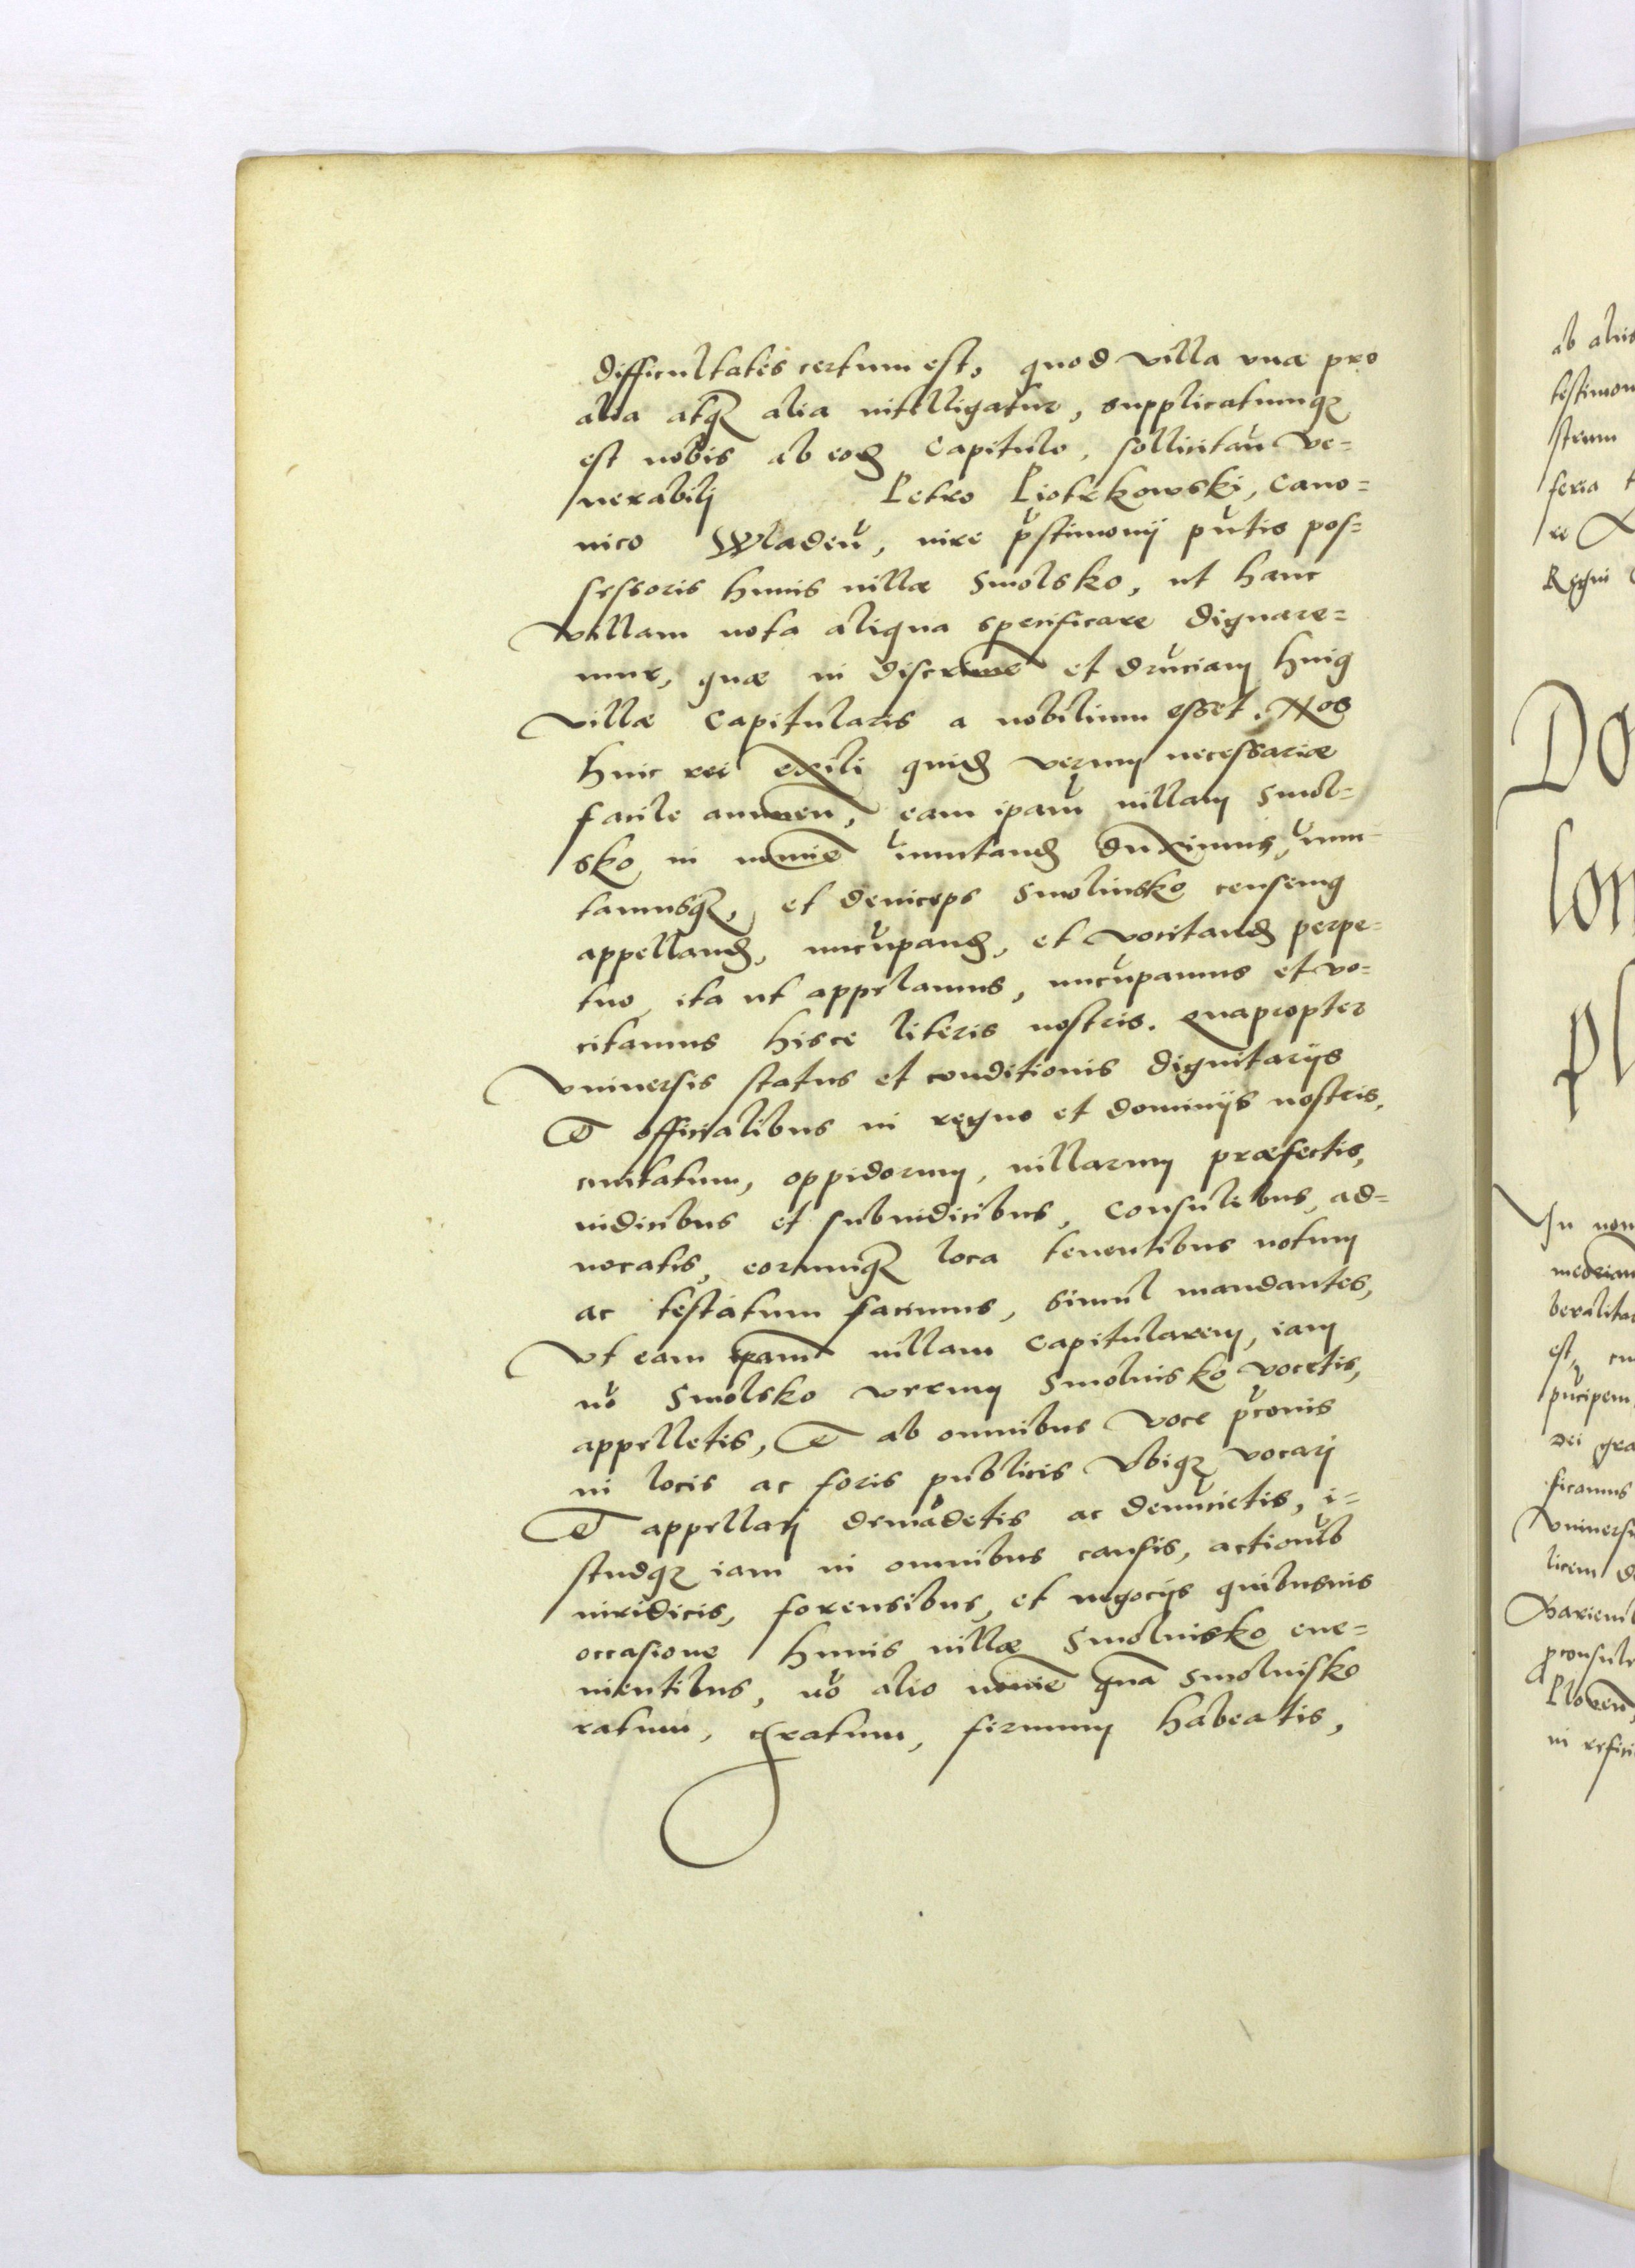 difficultates certum est, quod villa una pro
alia atq3 alia intelligatur, supplicatumq3
est nobis ab eod Capitulo, sollicitan̄ ve=
nerabilj Petro Piotrkowski, Cano=
nico Wladen̄, iure p̄stimonij pn̄tis pos=
sessoris huius uillæ Smolsko, ut hanc
villam nota aliqua specificare dignare=
mur, quæ in discrimē et dr̄nciam huiꝰ
villæ Capitularis a nobilium esset. Nos
huic rei exili quid verum necessariæ
facile annuen̄, eam ipam̄ uillam Smol=
sko in nomīe im̄utand duximus, im̄u=
tamusq3, et deinceps Smolinsko censemꝰ
appelland, nuncupand, et vocitand perpe=
tuo, ita ut appelamus, nuncupamus et vo=
citamus hisce literis nostris. Quapropter
vniuersis status et conditionis dignitarijs
Et officialibus in regno et dominijs nostris,
ciuitatum, oppidorum, uillarum præfectis,
iudicibus et subiudicibus, Consulibus, ad=
uocatis, eorumq3 loca tenentibus notum
ac testatum facimus, simul mandantes,
Vt eam ipam̄ uillam Capitularem, iam
nō Smolsko verum Smolinsko vocetis,
appelletis, Et ab omnibus voce p̄conis
in locis ac foris publicis vbiq3 vocarj
Et appellarj demādetis ac denūcietis, i=
studq3 iam in omnibus causis, actionib̄
iuridicis, forensibus, et negocijs quibusuis
occasione huius uillæ Smolinsko eue=
nientibus, nō alio nomīe quā Smolinsko
ratum, gratum, firmum habeatis,
ab aliis
testimon
feria
Regni
DO
lon
pl
In nom
beralita
est, cu
p̄ncipem
Dei gra
ficamus
Vniuersi
licem
proconsul